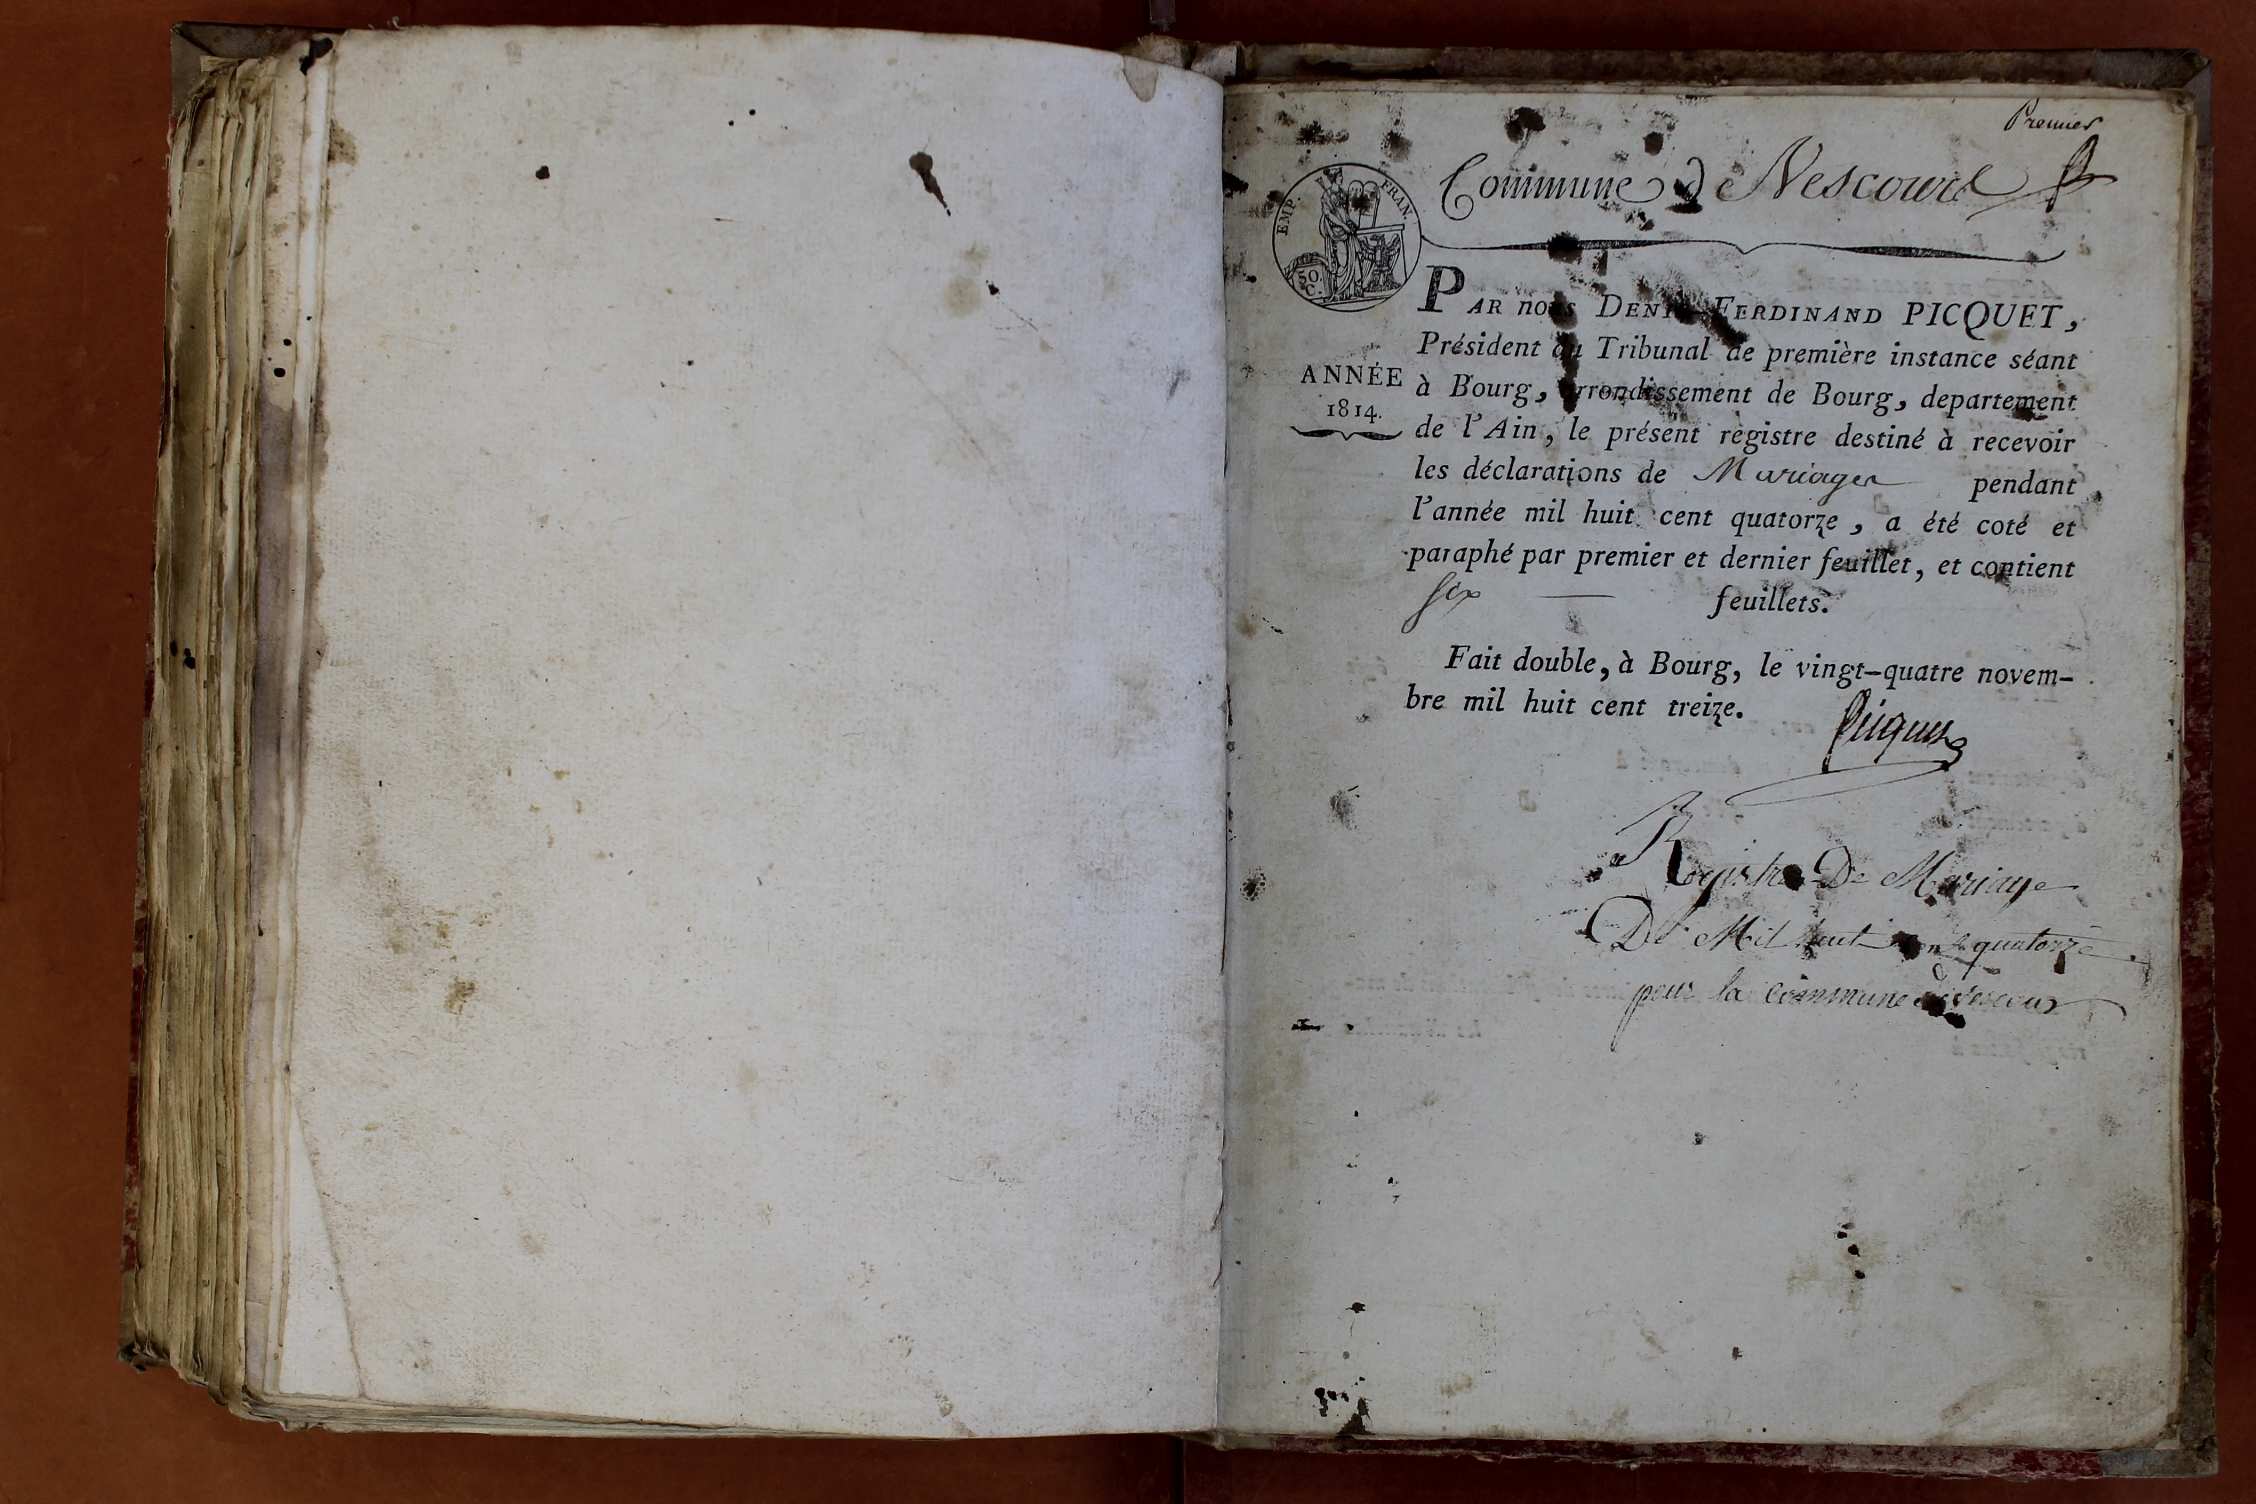 Premier
Commune de Vescours
EMP. FRAN.
50.
C.
PAR nous DENIS-FERDINAND PICQUET,
Président du Tribunal de première instance séant
ANNÉE
1814.
à Bourg, arrondissement de Bourg, departement
de l'Ain, le présent régistre destiné à recevoir
les déclarations de Mariages pendant
l'année mil huit cent quatorze, a été coté et
paraphé par premier et dernier feuillet, et contient
six feuillets.
Fait double, à Bourg, le vingt-quatre novem-
bre mil huit cent treize.
Picquet
Registre De Mariage
De Mil huit cent quatorze
pour la commune de Vescour